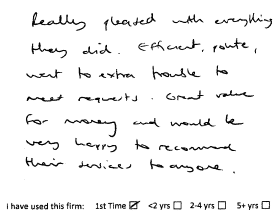 Really pleased with everything
they did. Efficient, polite,
went to extra trouble to
meet requests. Great value
for money and would be
very happy to recommend
their services to anyone.
I have used this firm: 1st Time ☑ <2 yrs ☐ 2-4 yrs ☐ 5+ yrs ☐